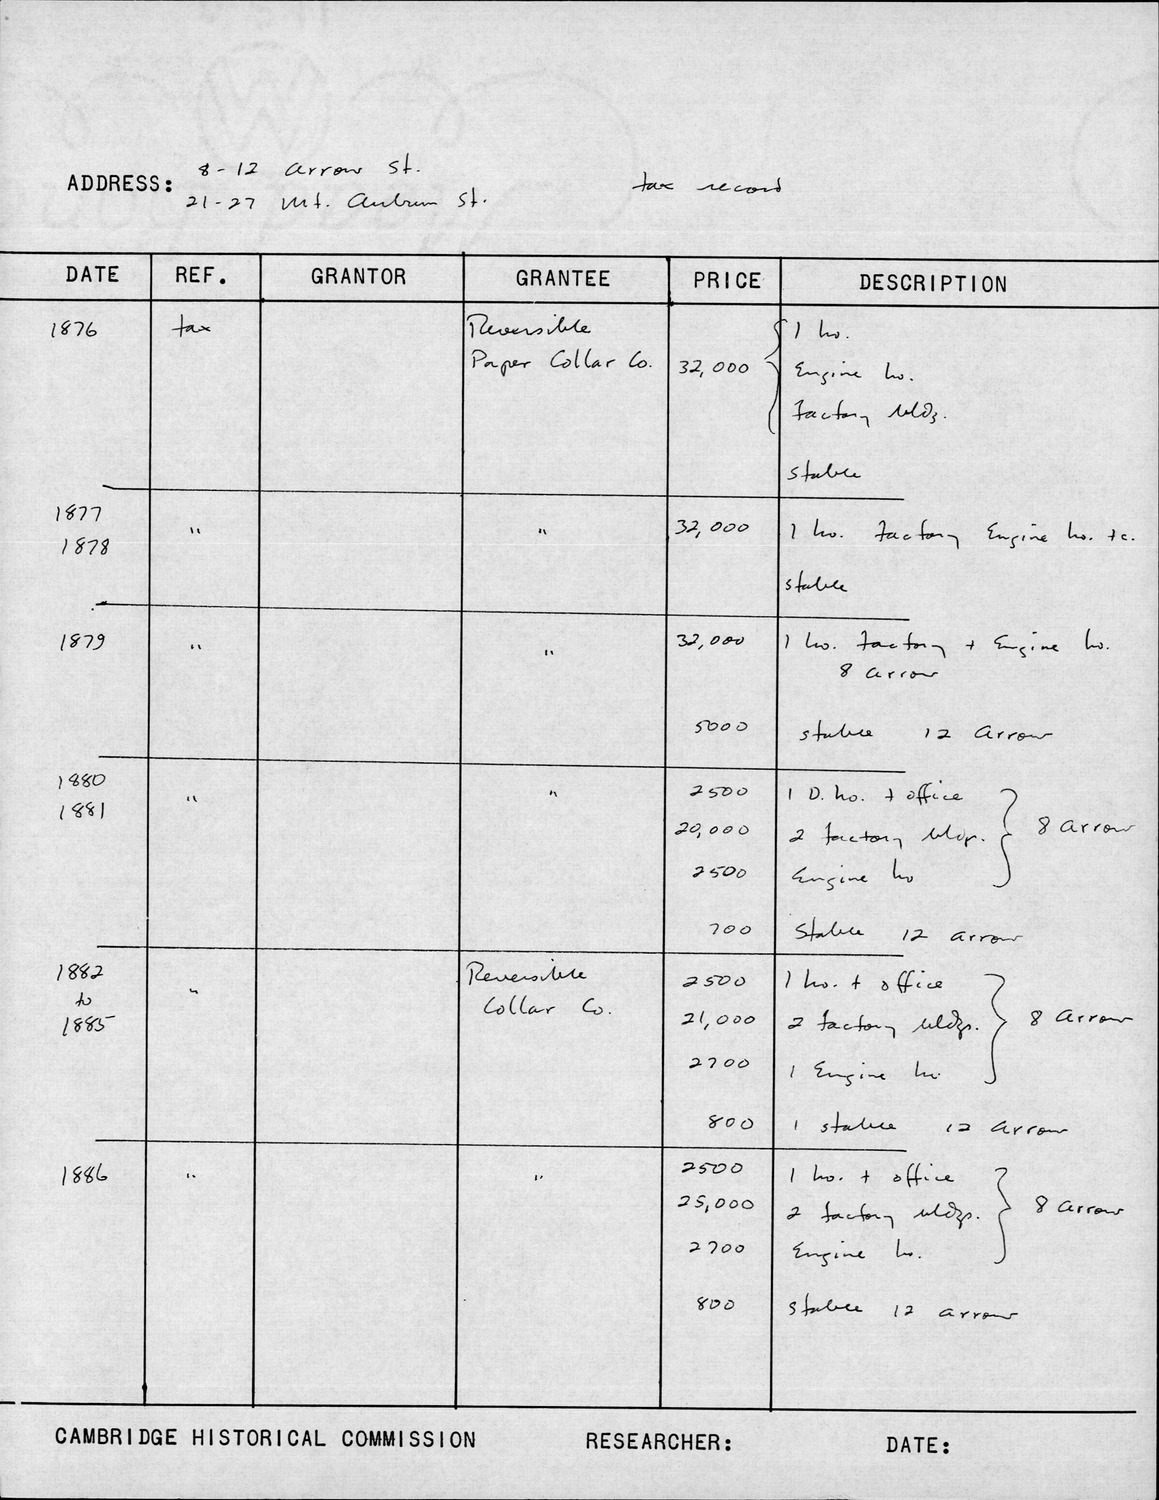 8-12 Arrow St.
ADDRESS:
21-27 Mt. Auburn St.
tax record
DATE REF. GRANTOR GRANTEE PRICE DESCRIPTION
1876 tax Reversible 1 ho.
Paper Collar Co. 32,000 Engine ho.
Factory bldg.
stable
1877
1878 " " 32,000 1 ho. Factory Engine ho. +c.
stable
1879 " " 32,000 1 ho. Factory + Engine ho.
8 Arrow
5000 stable 12 Arrow
1880 2500 1 D. ho. + office
1881 " " 20,000 2 factory bldgs. 8 Arrow
2500 Engine ho
700 Stable 12 Arrow
1882 Reversible 2500 1 ho. + office
to " Collar Co. 21,000 2 factory bldgs. 8 Arrow
1885 2700 1 Engine ho.
800 1 stable 12 Arrow
1886 " " 2500 1 ho. + office
25,000 2 factory bldgs. 8 Arrow
2700 Engine ho.
800 stable 12 Arrow
CAMBRIDGE HISTORICAL COMMISSION RESEARCHER: DATE: